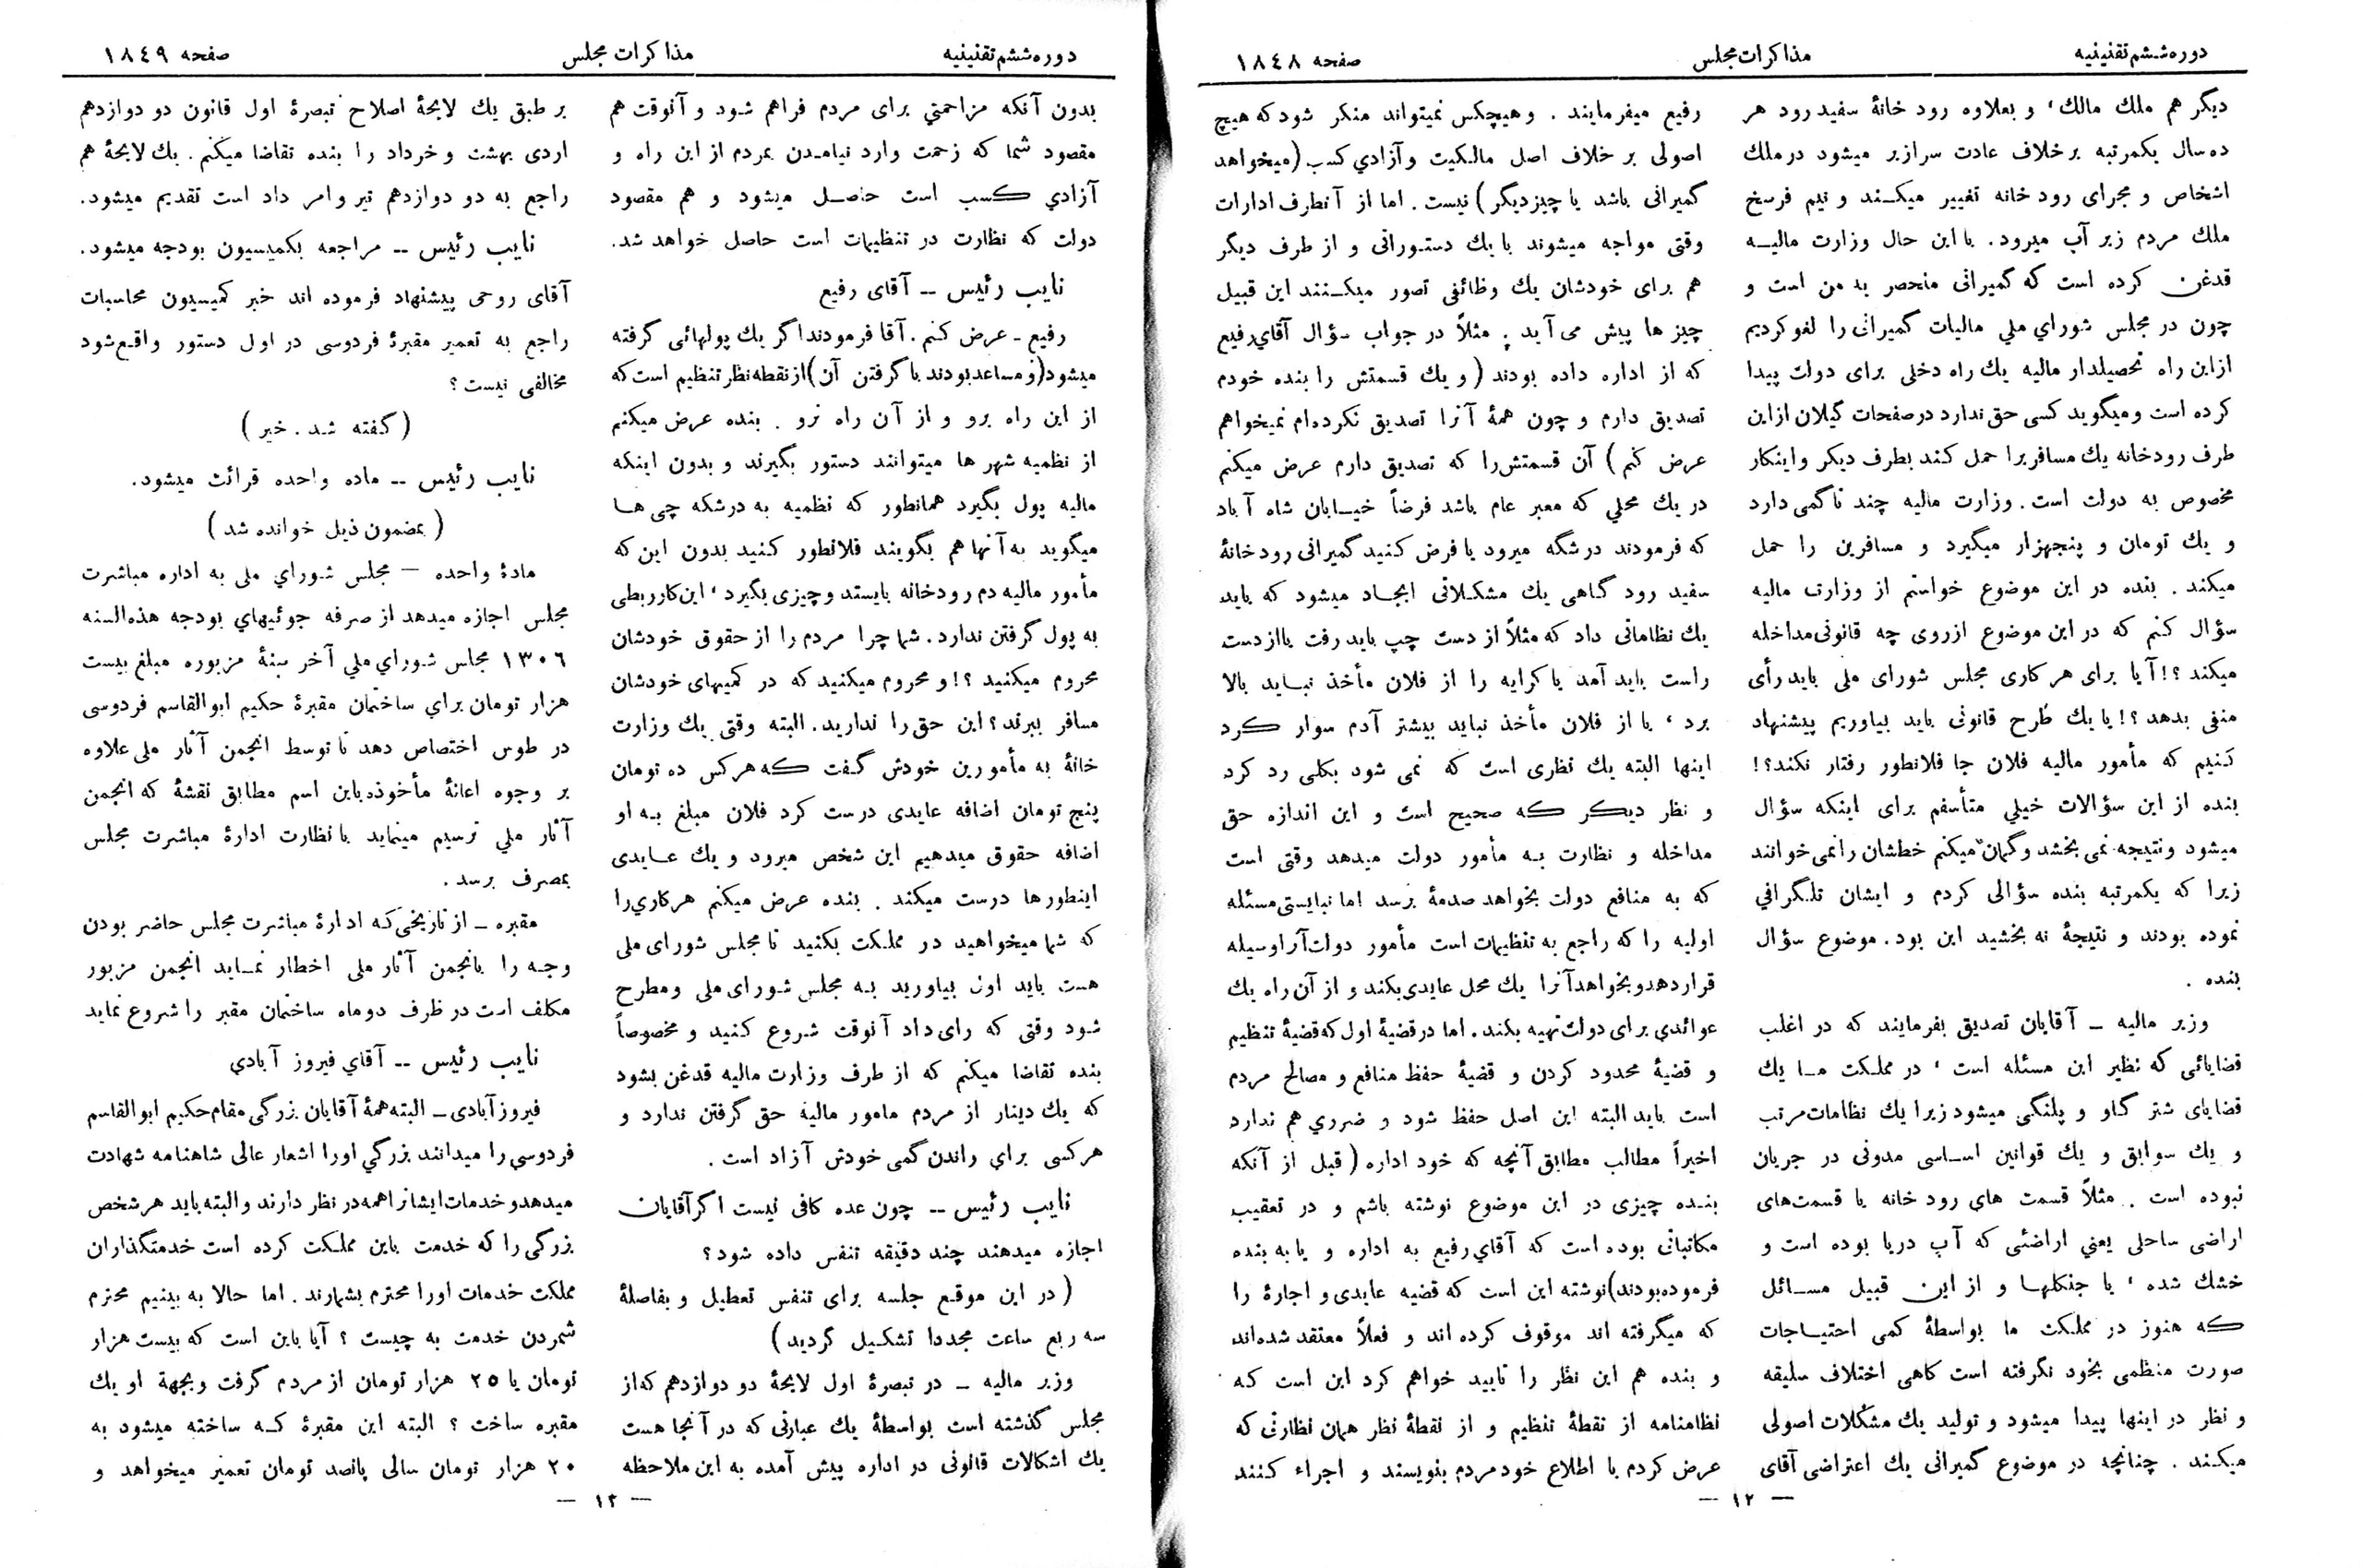 دوره ششم تقنینیه
مذاکرات مجلس
صفحه ۱۸۴۸
دیگر هم ملك مالك ، و بعلاوه رود خانهٔ سفید رود هر
ده سال یکمرتبه برخلاف عادت سرازیر میشود در ملك
اشخاص و مجرای رود خانه تغییر میکند و نیم فرسخ
ملك مردم زیر آب میرود. با این حال وزارت مالیه
قدغن کرده است که گمیرانی منحصر به من است و
چون در مجلس شورای ملی مالیات گمیرانی را لغو کردیم
از این راه تحصیلدار مالیه یك راه دخلی برای دولت پیدا
کرده است و میگوید کسی حق ندارد در صفحات گیلان از این
طرف رودخانه یك مسافر برا حمل کند بطرف دیکر و اینکار
مخصوص به دولت است. وزارت مالیه چند تا گمی دارد
و یك تومان و پنجهزار میگیرد و مسافرین را حمل
میکند . بنده در این موضوع خواستم از وزارت مالیه
سؤال کنم که در این موضوع ازروی چه قانونی مداخله
میکند ؟! آیا برای هر کاری مجلس شورای ملی باید رأی
منفی بدهد ؟! یا یك طرح قانونی باید بیاوریم پیشنهاد
کنیم که مأمور مالیه فلان جا فلانطور رفتار نکند؟!
بنده از این سؤالات خیلي متأسفم برای اینکه سؤال
میشود و نتیجه نمی بخشد و گمان میکنم خطشان را نمی خوانند
زیرا که یکمرتبه بنده سؤالی کردم و ایشان تلگرافي
نموده بودند و نتیجهٔ نه بخشید این بود. موضوع سؤال
بنده .
وزیر مالیه ـ آقایان تصدیق بفرمایند که در اغلب
قضایائی که نظیر این مسئله است ، در مملکت ما یك
قضایای شتر گاو و پلنگی میشود زیرا یك نظامات مرتب
و یك سوابق و یك قوانین اساسی مدونی در جریان
نبوده است . مثلاً قسمت های رود خانه یا قسمت‌های
اراضی ساحلی یعني اراضئی که آب دریا بوده است و
خشك شده ، یا جنکلها و از این قبیل مسائل
که هنوز در مملکت ما بواسطهٔ کمی احتیاجات
صورت منظمی بخود نگرفته است کاهی اختلاف سلیقه
و نظر در اینها پیدا میشود و تولید یك مشکلات اصولی
میکند . چنانچه در موضوع گمیرانی یك اعتراضی آقای
رفیع میفرمایند . و هیچکس نمیتواند منکر شود که هیچ
اصولی بر خلاف اصل مالکیت و آزادي کسب (میخواهد
گمیرانی باشد یا چیز دیگر) نیست . اما از آنطرف ادارات
وقتی مواجه میشوند با یك دستوراتی و از طرف دیگر
هم برای خودشان یك وظائفی تصور میکنند این قبیل
چیز ها پیش می آید . مثلاً در جواب سؤال آقای رفیع
که از اداره داده بودند ( و یك قسمتش را بنده خودم
تصدیق دارم و چون همهٔ آنرا تصدیق نکرده‌ام نمیخواهم
عرض کنم ) آن قسمتش را که تصدیق دارم عرض میکنم
در یك محلي که معبر عام باشد فرضاً خیابان شاه آباد
که فرمودند درشگه میرود یا فرض کنید گمیرانی رود خانهٔ
سفید رود گاهی یك مشکلاتی ایجاد میشود که باید
یك نظاماتی داد که مثلاً از دست چپ باید رفت یا از دست
راست باید آمد یا کرایه را از فلان مأخذ نباید بالا
برد ، یا از فلان مأخذ نباید بیشتر آدم سوار کرد
اینها البته یك نظری است که نمی شود بکلی رد کرد
و نظر دیکر که صحیح است و این اندازه حق
مداخله و نظارت به مأمور دولت میدهد وقتی است
که به منافع دولت بخواهد صدمهٔ برسد اما نبایستی مسئله
اولیه را که راجع به تنظیمات است مأمور دولت آنرا وسیله
قرار دهد و بخواهد آنرا یك محل عایدی بکند و از آن راه یك
عوائدی برای دولت تهیه بکند. اما در قضیهٔ اول که قضیهٔ تنظیم
و قضیهٔ محدود کردن و قضیهٔ حفظ منافع و مصالح مردم
است باید البته این اصل حفظ شود و ضرري هم ندارد
اخیراً مطالب مطابق آنچه که خود اداره ( قبل از آنکه
بنده چیزی در این موضوع نوشته باشم و در تعقیب
مکاتباتی بوده است که آقاي رفیع به اداره و یا به بنده
فرموده بودند) نوشته این است که قضیه عایدی و اجارهٔ را
که میگرفته اند موقوف کرده اند و فعلاً معتقد شده‌اند
و بنده هم این نظر را تایید خواهم کرد این است که
نظامنامه از نقطهٔ تنظیم و از نقطهٔ نظر همان نظارتی که
عرض کردم با اطلاع خود مردم بنویسند و اجراء کنند
— ۱۲ —
دوره ششم تقنینیه
مذاکرات مجلس
صفحه ۱۸۴۹
بدون آنکه مزاحمتي برای مردم فراهم شود و آنوقت هم
مقصود شما که زحمت وارد نیامدن بمردم از این راه و
آزادي کسب است حاصل میشود و هم مقصود
دولت که نظارت در تنظیمات است حاصل خواهد شد.
نایب رئیس ــ آقای رفیع
رفیع ـ عرض کنم . آقا فرمودند اگر یك پولهائی گرفته
میشود (و مساعد بودند با گرفتن آن) از نقطه نظر تنظیم است که
از این راه برو و از آن راه نرو . بنده عرض میکنم
از نظمیه شهر ها میتوانند دستور بگیرند و بدون اینکه
مالیه پول بگیرد همانطور که نظمیه به درشکه چی ها
میگوید به آنها هم بگویند فلانطور کنید بدون این که
مأمور مالیه دم رودخانه بایستد و چیزی بگیرد ، این کار ربطی
به پول گرفتن ندارد . شما چرا مردم را از حقوق خودشان
محروم میکنید ؟! و محروم میکنید که در کمیهای خودشان
مسافر ببرند ؟ این حق را ندارید . البته وقتی یك وزارت
خانهٔ به مأمورین خودش گفت که هر کس ده تومان
پنج تومان اضافه عایدی درست کرد فلان مبلغ به او
اضافه حقوق میدهیم این شخص میرود و یك عایدی
اینطور ها درست میکند . بنده عرض میکنم هر کاري را
که شما میخواهید در مملکت بکنید تا مجلس شورای ملی
هست باید اون بیاورید به مجلس شورای ملی و مطرح
شود وقتی که رای داد آنوقت شروع کنید و مخصوصاً
بنده تقاضا میکنم که از طرف وزارت مالیه قدغن بشود
که یك دینار از مردم مامور مالیه حق گرفتن ندارد و
هر کسی براي راندن گمی خودش آزاد است .
نایب رئیس ــ چون عده کافی نیست اگر آقایان
اجازه میدهند چند دقیقه تنفس داده شود ؟
( در این موقع جلسه برای تنفس تعطیل و بفاصلهٔ
سه ربع ساعت مجددا تشکیل گردید )
وزیر مالیه ـ در تبصرهٔ اول لایحهٔ دو دوازدهم که از
مجلس گذشته است بواسطهٔ یك عبارتی که در آنجا هست
یك اشکالات قانونی در اداره پیش آمده به این ملاحظه
بر طبق یك لایحهٔ اصلاح تبصرهٔ اول قانون دو دوازدهم
اردی بهشت و خرداد را بنده تقاضا میکنم . یك لایحهٔ هم
راجع به دو دوازدهم تیر و امر داد است تقدیم میشود.
نایب رئیس ــ مراجعه بکمیسیون بودجه میشود.
آقای روحی پیشنهاد فرموده اند خبر کمیسیون محاسبات
راجع به تعمیر مقبرهٔ فردوسی در اول دستور واقع شود
مخالفی نیست ؟
( گفته شد . خیر )
نایب رئیس ــ ماده واحده قرائت میشود.
( بمضمون ذیل خوانده شد )
مادهٔ واحده — مجلس شوراي ملی به اداره مباشرت
مجلس اجازه میدهد از صرفه جوئیهاي بودجه هذه السنه
۱۳۰۶ مجلس شوراي ملي آخر سنهٔ مزبوره مبلغ بیست
هزار تومان براي ساختمان مقبرهٔ حکیم ابوالقاسم فردوسی
در طوس اختصاص دهد تا توسط انجمن آثار ملی علاوه
بر وجوه اعانهٔ مأخوذه باین اسم مطابق نقشهٔ که انجمن
آثار ملي ترسیم مینماید با نظارت ادارهٔ مباشرت مجلس
بمصرف برسد .
مقبره ـ از تاریخی که ادارهٔ مباشرت مجلس حاضر بودن
وجه را بانجمن آثار ملی اخطار نماید انجمن مزبور
مکلف است در ظرف دو ماه ساختمان مقبر را شروع نماید
نایب رئیس ــ آقاي فیروز آبادي
فیروز آبادی ـ البته همهٔ آقایان بزرگی مقام حکیم ابوالقاسم
فردوسي را میدانند بزرگي اورا اشعار عالی شاهنامه شهادت
میدهد و خدمات ایشانرا همه در نظر دارند و البته باید هر شخص
بزرگی را که خدمت باین مملکت کرده است خدمتگذاران
مملکت خدمات اورا محترم بشمارند . اما حالا به بینیم محترم
شمردن خدمت به چیست ؟ آیا باین است که بیست هزار
تومان یا ۲۵ هزار تومان از مردم گرفت و بجهة او یك
مقبره ساخت ؟ البته این مقبرهٔ که ساخته میشود به
۲۰ هزار تومان سالی پانصد تومان تعمیر میخواهد و
— ۱۳ —